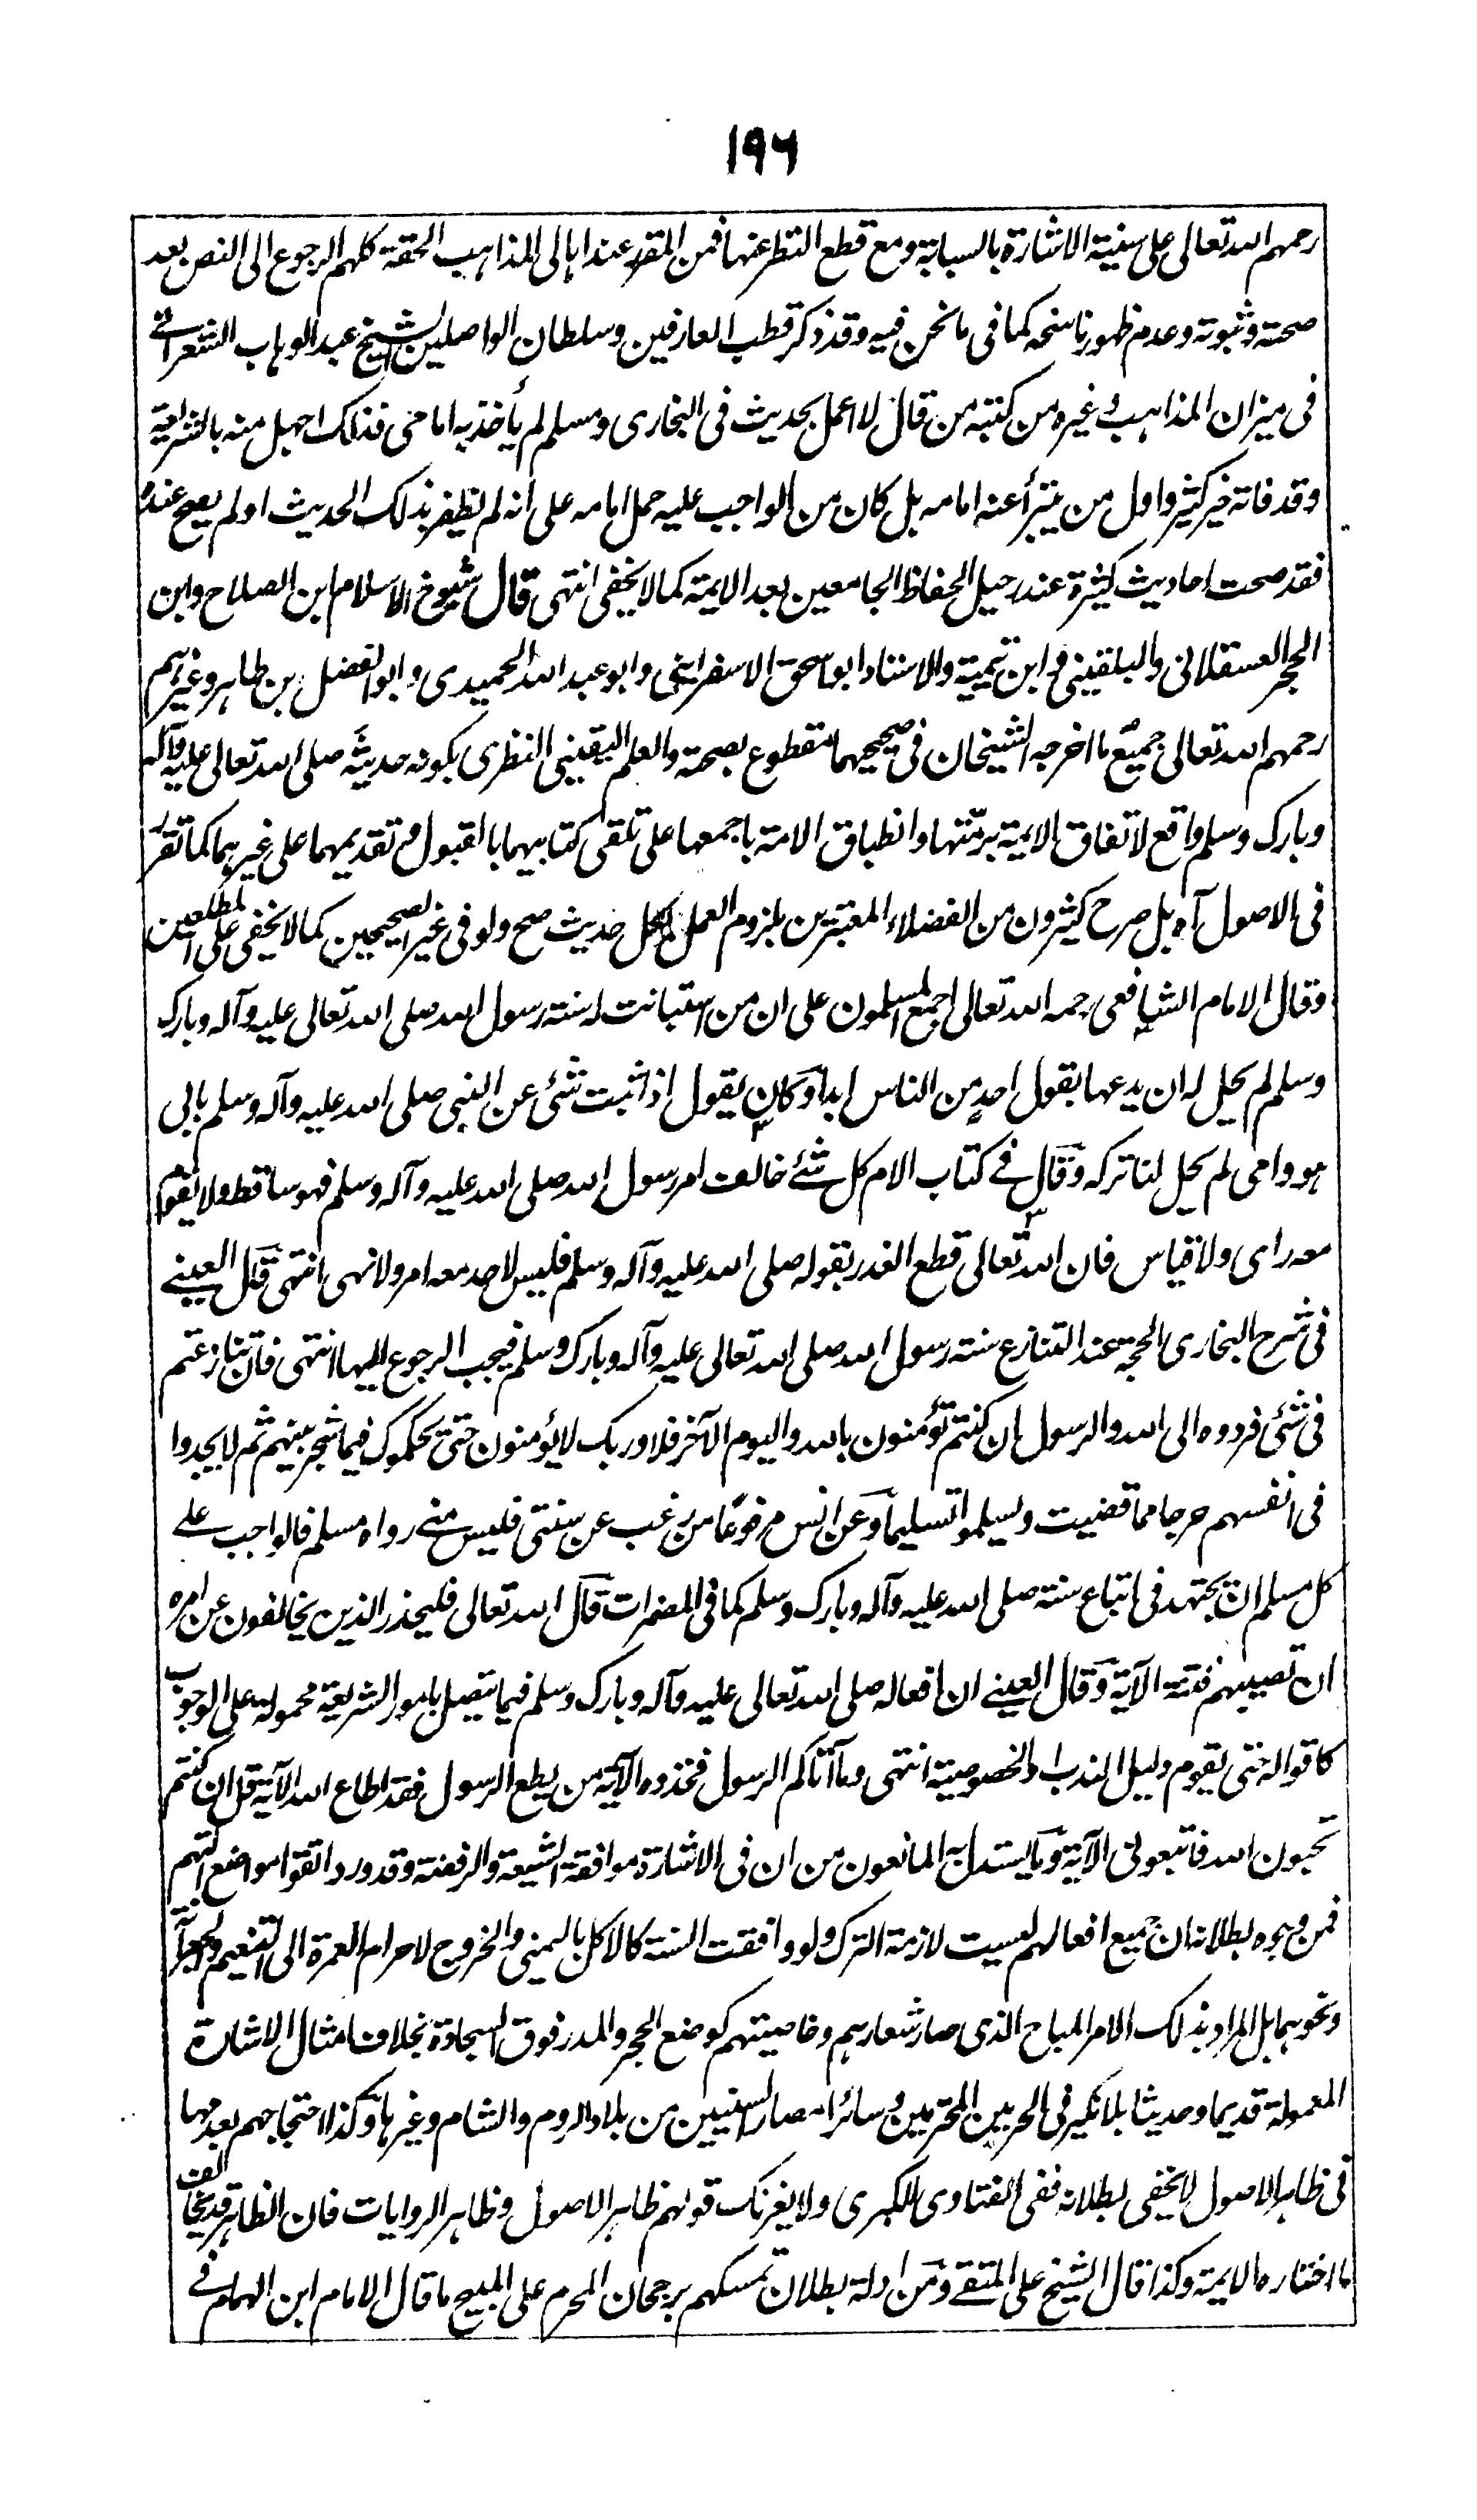 ۱۹۶
رحمهم الله تعالى على سنية الاشارة بالسبابة ومع قطع النظر عنها فمن المقرر عند اهالى المذاهب الحقة كلهم الرجوع الى النص بعد
صحته وثبوته وعدم ظهور ناسخه كما فى ما نحن فيه وقد ذكر قطب العارفين وسلطان الواصلين الشيخ عبد الوهاب الشعرانے
فى ميزان المذاهب وغيره من كتبه من قال لا اعمل بحديث فى البخارى ومسلم لم يأخذ به امامى فذلك اجهل منه بالشريعة
وقد فاته خير كثير واول من يتبرأ عنه امامه بل كان من الواجب عليه حمل امامه على انه لم يظفر بذلك الحديث او لم يصح عنده
فقد صحت احاديث كثيرة عند رحيل الحفاظ الجامعين بعد الايمة كما لا يخفى انتهى قال شيوخ الاسلام ابن الصلاح وابن
الحجر العسقلانى والبلقينى وابن تيمية والاستاد ابو اسحق الاسفرائنى وابو عبد الله الحميدى وابو الفضل بن طاهر وغيرهم
رحمهم الله تعالى جميع ما اخرجه الشيخان فى صحيحيهما مقطوع بصحته والعلم اليقينى النظرى بكونه حديثه صلى الله تعالى عليه وآله
وبارك وسلم واقع لاتفاق الايمة برمّتها وانطباق الامة باجمعها على تلقى كتابيهما بالقبول وتقديمهما على غيرهما كما تقرر
فى الاصول آه بل صرح كثيرون من الفضلاء المعتبرين بلزوم العمل بكل حديث صح ولو فى غير الصحيحين كما لا يخفى على المطلعين
وقال الامام الشافعى رحمه الله تعالى اجمع المسلمون على ان من استبانت له سنة رسول الله صلى الله تعالى عليه وآله وبارك
وسلم لم يحل له ان يدعها بقول احد من الناس ابدا وكان يقول اذا ثبت شئ عن النبى صلى الله عليه وآله وسلم بابى
هو وامى لم يحل لنا تركه وقال فے كتاب الام كل شئے خالف امر رسول الله صلى الله عليه وآله وسلم فهو ساقط ولا يقوم
معه راى ولا قياس فان الله تعالى قطع العذر بقوله صلى الله عليه وآله وسلم فليس لاحد معه امر ولا نهى انتهى قال العينے
فى شرح البخارى الحجة عند التنازع سنة رسول الله صلى الله تعالى عليه وآله وبارك وسلم فيجب الرجوع اليها انتهى فان تنازعتم
فى شئ فردوه الى الله والرسول ان كنتم تؤمنون بالله واليوم الآخر فلا وربك لا يؤمنون حتى يحكموك فيما شجر بينهم ثم لا يجدوا
فى انفسهم حرجا مما قضيت ويسلموا تسليما وعن انس مرفوعًا من رغب عن سنتى فليس منے رواه مسلم فالواجب علے
كل مسلم ان يجتهد فى اتباع سنته صلى الله عليه وآله وبارك وسلم كما فى المضمرات قال الله تعالى فليحذر الذين يخالفون عن امره
ان تصيبهم فتنة الآية وقال العينے ان افعاله صلى الله تعالى عليه وآله وبارك وسلم فيما يتصل بامور الشريعة محمولة على الوجوب
كاقواله حتى يقوم دليل الندب او الخصوصية انتهى وما آتاكم الرسول فخذوه الآية من يطع الرسول فقد اطاع الله الآية قل ان كنتم
تحبون الله فاتبعونى الآية وما يستدل به المانعون من ان فى الاشارة موافقة الشيعة والرفضة وقد ورد اتقوا مواضع التهم
فمن وجوه بطلانه ان جميع افعالهم ليست لازمة الترك ولو وافقت السنة كالاكل باليمنى والخروج لاحرام العمرة الى التنعيم والجعرانة
ونحوهما بل المراد بذلك الامر المباح الذى صار شعارهم وخاصيتهم كوضع الحجر والمدر فوق السجادة بخلاف امثال الاشارة
المعمولة قديما وحديثا بلا نكير فى الحرمين المحترمين وسائر امصار السنيين من بلاد الروم والشام وغيرها وكذا احتجاجهم بعدمها
فى ظاهر الاصول لا يخفى بطلانه ففى الفتاوى الكبرى ولا يغرنك قولهم ظاهر الاصول وظاهر الروايات فان الظاهر قد يخالف
ما اختاره الايمة وكذا قال الشيخ على المتقے ومن ادلة بطلان تمسكهم برجحان المحرم على المبيح ما قال الامام ابن الهمام فے